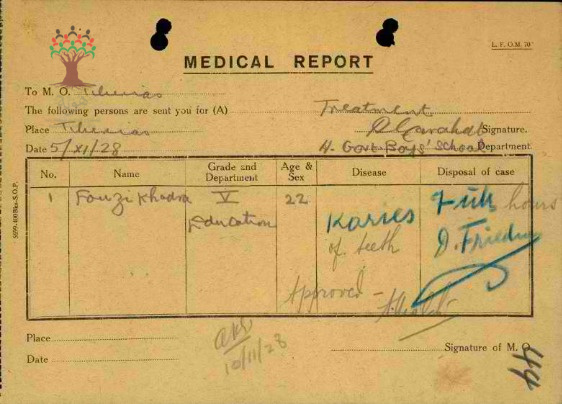 L. F. O. M. 10
MEDICAL REPORT
To M. O. Tiberias
The following persons are sent you for (A) Treatment
Place Tiberias Signature.
Date 5/XI/28 H. Govt Boys' School Department
No. Name Grade and Department Age & Sex Disease Disposal of case
1 Fouzi Khadra V Education 22 Karies of teeth hours
D. Friedm
Approved –
10/11/28
Place
Date Signature of M. O.
44